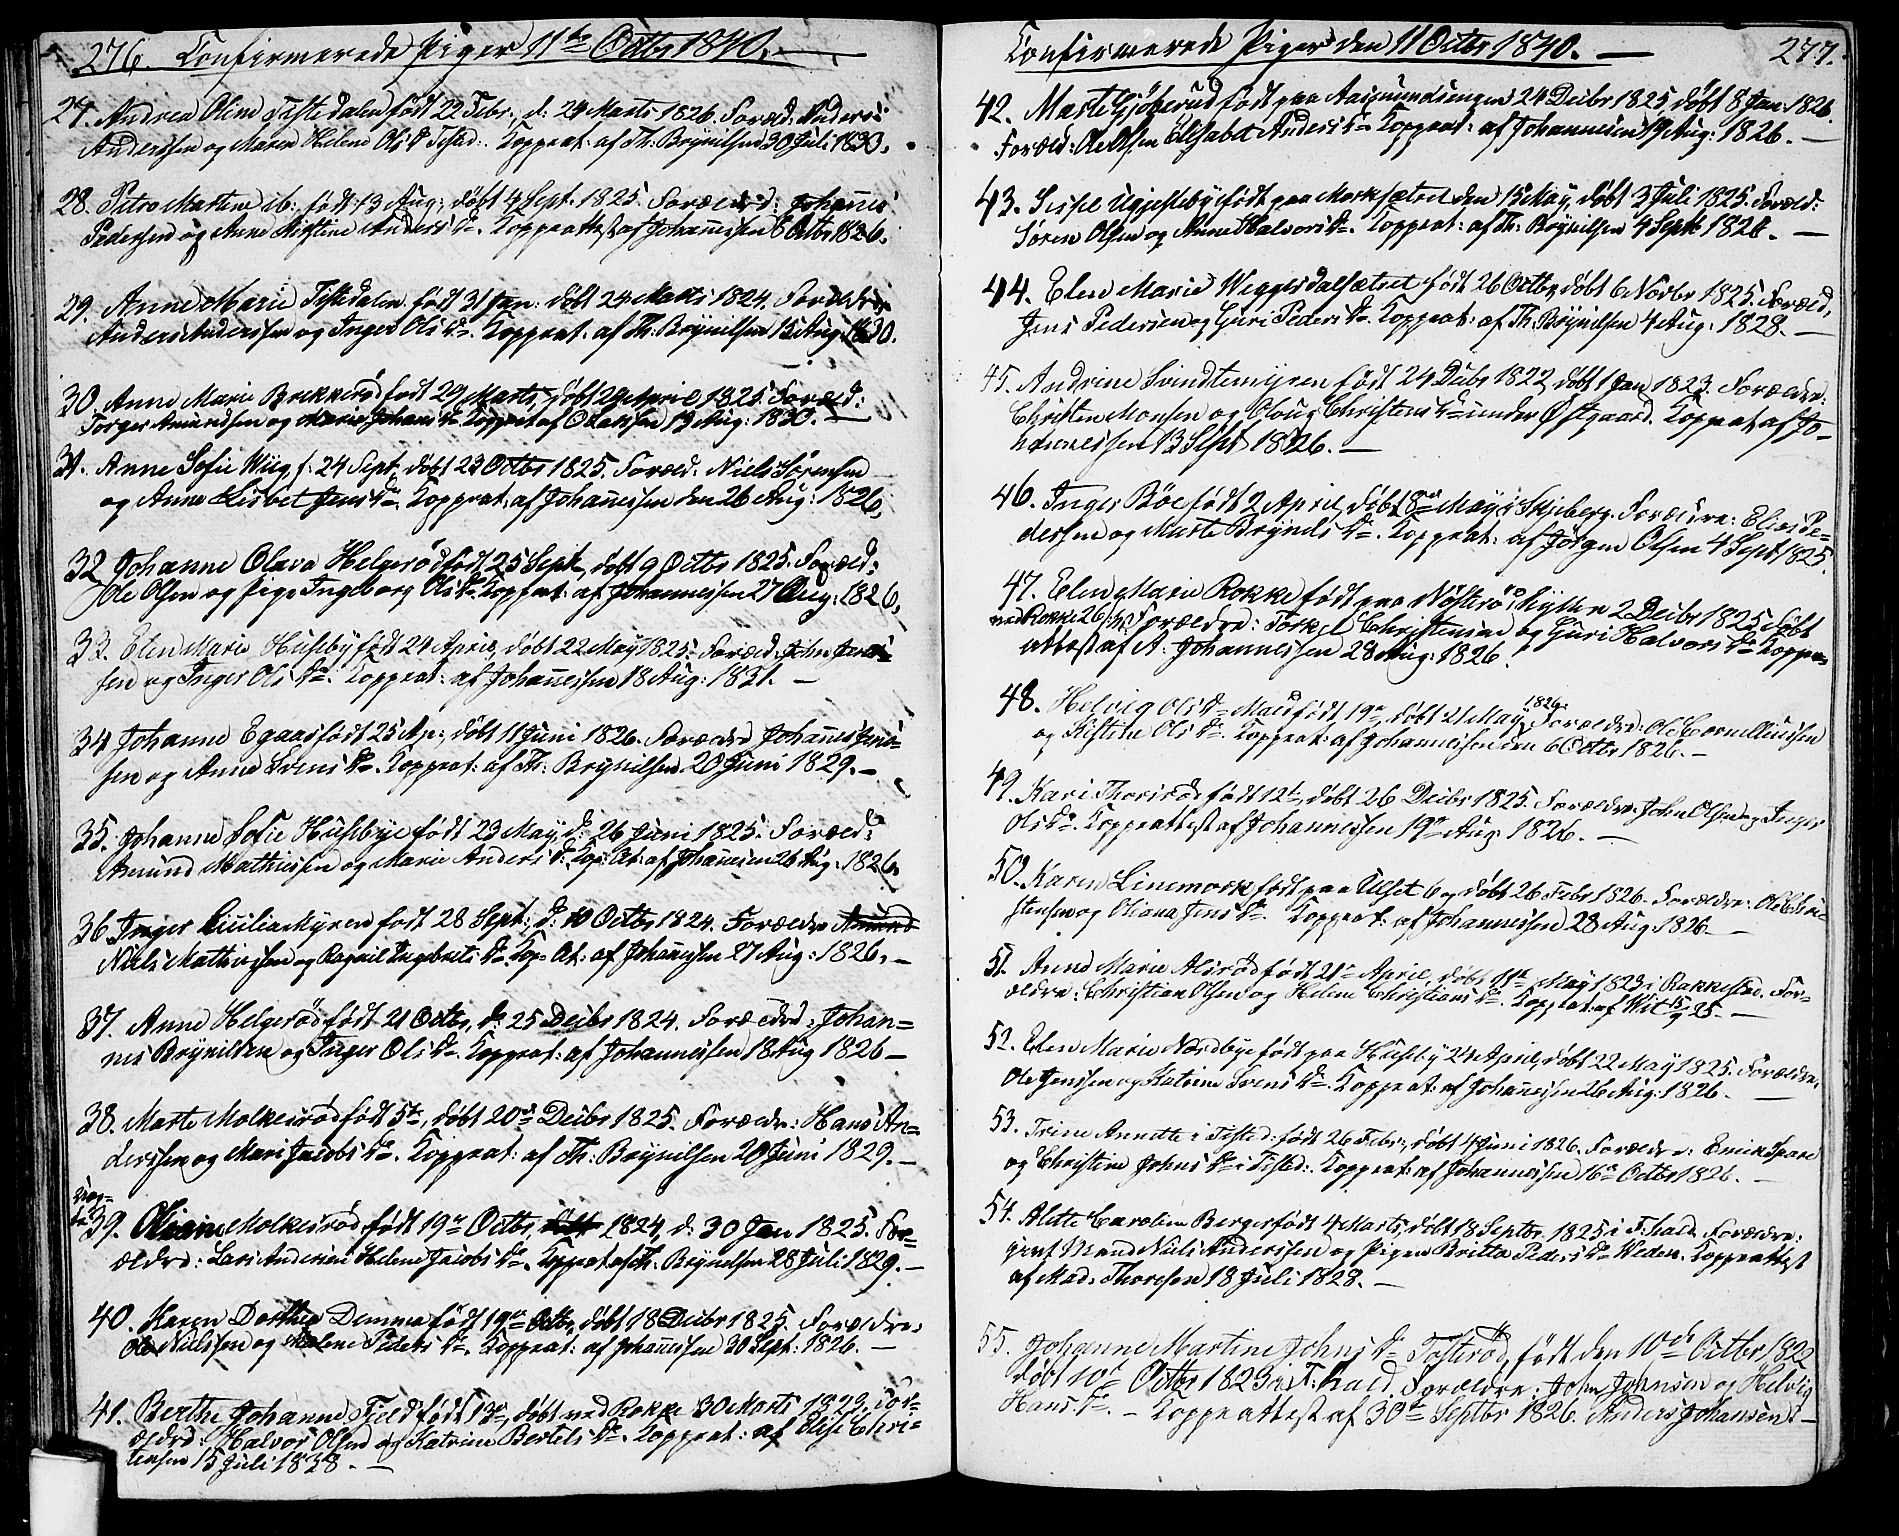 276. Confirmerede Piger 11te Octbr 1840.
27. Andrea Oline Tistedalen født 22 Febr., d: 24 Marts 1826. Foræld: Anders
Anderssen og Maren Helene Olsdr Tisted:. Koppeat: af Th: Brynilsen 30 Juli 1830.
28. Petra Martine ib: født 13 Aug:, døbt 4 Sept. 1825. Forældre: Johannes
Pedersen og Anne Kirstine Andersdr. Koppeattest af Johannessen 6 Octbr 1826.
29. Anne Marie Tistedalen født 31 Jan: døbt 24 Marts 1824. Forældre
Anders Anderssen og Inger Olsdr. Koppeat. af Th: Brynilsen 15 Aug. 1830.
30. Anne Marie Brekkerød født 29 Marts, døbt 24 April 1825. Foræld:
Torger Amundsen og Marie Johansdr Koppeat af Olaksen 13 Aug: 1830.
31. Anne Sofie Wiig, f: 24 Sept, døbt 23 Octbr 1825. Foræld: Niels Sørensen
og Anne Lisbet Jensdr. Koppeat: af Johannessen den 26 Aug: 1826.
32. Johanne Olava Helgerød født 25 Sept, døbt 9 Octbr 1825. Foræld:
Ole Olsen og Pige Ingeborg Olsdr. Koppeat: af Johannessen 27 Aug: 1826.
33. Elen Marie Huseby født 24 April, døbt 22 May 1825. Foræld: John Jens-
sen og Inger Olsdr. Koppeat: af Johannessen 18 Aug: 1831. —
34. Johanne Egaas født 25 Ap:, døbt 11 Juni 1826. Forældre Johannes Jens-
sen og Anne Svensdr. Koppeat: af Th: Brynilsen 20 Juni 1829. —
35. Johanne Sofie Husebye født 23 May, d: 26 Juni 1825. Foræld:
Amund Mathiessen og Marie Andersdr. Kop: At: af Johannesen 26 Aug: 1826.
36. Inger Cicilia Myren født 28 Sept:, d: 10 Octbr 1824. Forældre Amund
Niels Mathiessen og Ragnil Ingebretsdr. Kop: At: af Johannesen 27 Aug: 1826. —
37. Anne Helgerød født 21 Octbr, d: 25 Decbr 1824. Forældre: Johan=
nes Brynilsen og Inger Olsdr. Koppeat: af Johannessen 18 Aug 1826 —
38. Marte Molkerød født 5te, døbt 20de Decbr 1825. Forældre: Hans An=
derssen og Mari Jacobsdr. Koppeat: af Th: Brynilsen 20 Juni 1829. —
39. Molkerød født 19de Octbr, 1824, d: 30 Jan 1825. For=
ældre: Lars Andersen Helene Jacobsdr. Koppeat af Th. Brynilsen 28 Juli 1829. —
40. Karen Dorthea Demma født 19de Octbr, døbt 18 Decbr 1825. Forældre:
Ole Nielssen og Malene Pedersdr. Koppeat: af Johannessen 30 Sept: 1826. —
41. Berthe Johanne Fjeld født 13de, døbt ved Rokke 30 Marts 1823. For-
ældre: Halvor Olsen og Katrine Bertelsdr. Koppeat: af Elise Chri-
stensen 15 Juli 1828. —
Confirmerede Piger den 11 Octbr 1840. — 277.
42. Marte Gjøberud født paa 24 Decbr 1825 døbt 8 Jan: 1826.
Foræld: Ole Olsen Elisabet Andersdr. Koppeat: af Johannessen 19 Aug: 1826. —
43. Sissel født paa Morksætret den 15 May, døbt 3 Juli 1825. Foræld:
Søren Olsen og Anne Halvorsdr. Koppeat: af Th: Brynilsen 4 Sept 1828. —
44. Elen Marie Weggersdalsætret født 26 Octbr, døbt 6 Novbr 1825. Foræld,
Jens Pedersen og Guri Pedersdr. Koppeat: af Th: Brynilsen 4 Aug: 1828. —
45. Andrine Svindtemyren født 24 Decbr 1822, døbt 1 Jan 1823. Forældre:
Christen Monsen og Oloug Christensdr under Østgaard. Koppeat af Jo-
hannessen 13 Sept 1826. —
46. Inger Böe født 2 April, døbt 8de May i Skjeberg. Forældre: Elias Pe-
dersen og Marte Brynilsdr. Koppeat: af Jörgen Olsen 4 Sept 1825.
47. Elen Marie Rokke født paa Hytten 2 Decbr 1825, døbt
ved Rokke 26 Forældre: Torkel Christensen og Guri Halvorsdr Koppe-
attest af A: Johannessen 28 Aug: 1826.
48. Helvig Olsdr født 19de, døbt 21 May 1826. Forældre: Ole Corneliussen
og Kistine Olsdr. Koppeat: af Johannessen den 6 Octbr 1826. —
49. Kari Thorisrød født 12te, døbt 26 Decbr 1825. Forældre: John Olsen og Inger
Olsdr. Koppeattest af Johannessen 19de Aug 1826. —
50. Karen Linemork født paa Ulset 6 og døbt 26 Febr 1826. Forældre: Ole Chri-
stensen og Oliana Jensdr. Koppeat: af Johannessen 28 Aug: 1826. —
51. Anne Marie Alsrød født 21de April, døbt 11te May 1823 i Rakkestad. For-
ældre: Christian Olsen og Helene Christiansdr. Koppeat: af Wit 25. —
52. Elen Marie Nordbye født paa Huseby 24 April, døbt 22 May 1825. Forældre,
Ole Jenssen og Katrine Svensdr. Koppeat: af Johannessen 26 Aug: 1826. —
53. Trine Annette i Tisted: født 26 Febr:, døbt 4 Juni 1826. Forældre: Spare
og Christine Johnsdr i Tisted:. Koppeat: af Johannessen 16de Octbr 1826. —
54. Alette Caroline Berger født 4 Marts, døbt 18 Septbr 1825 i F:hald Forældre:
givt Mand Niels Anderssen og Pigen Britta Pedersdr Weden. Koppeattest
af Mad: Thoresen 18 Juli 1828. —
55. Johanne Martine Johnsdr Tosterød, født den 10de Octbr 1822
døbt 10de Octbr 1823 i F:hald. Forældre: John Johnsen og Helvig
Hansdr. — Koppeattest af 30te Septbr 1826. Anders Johansen —